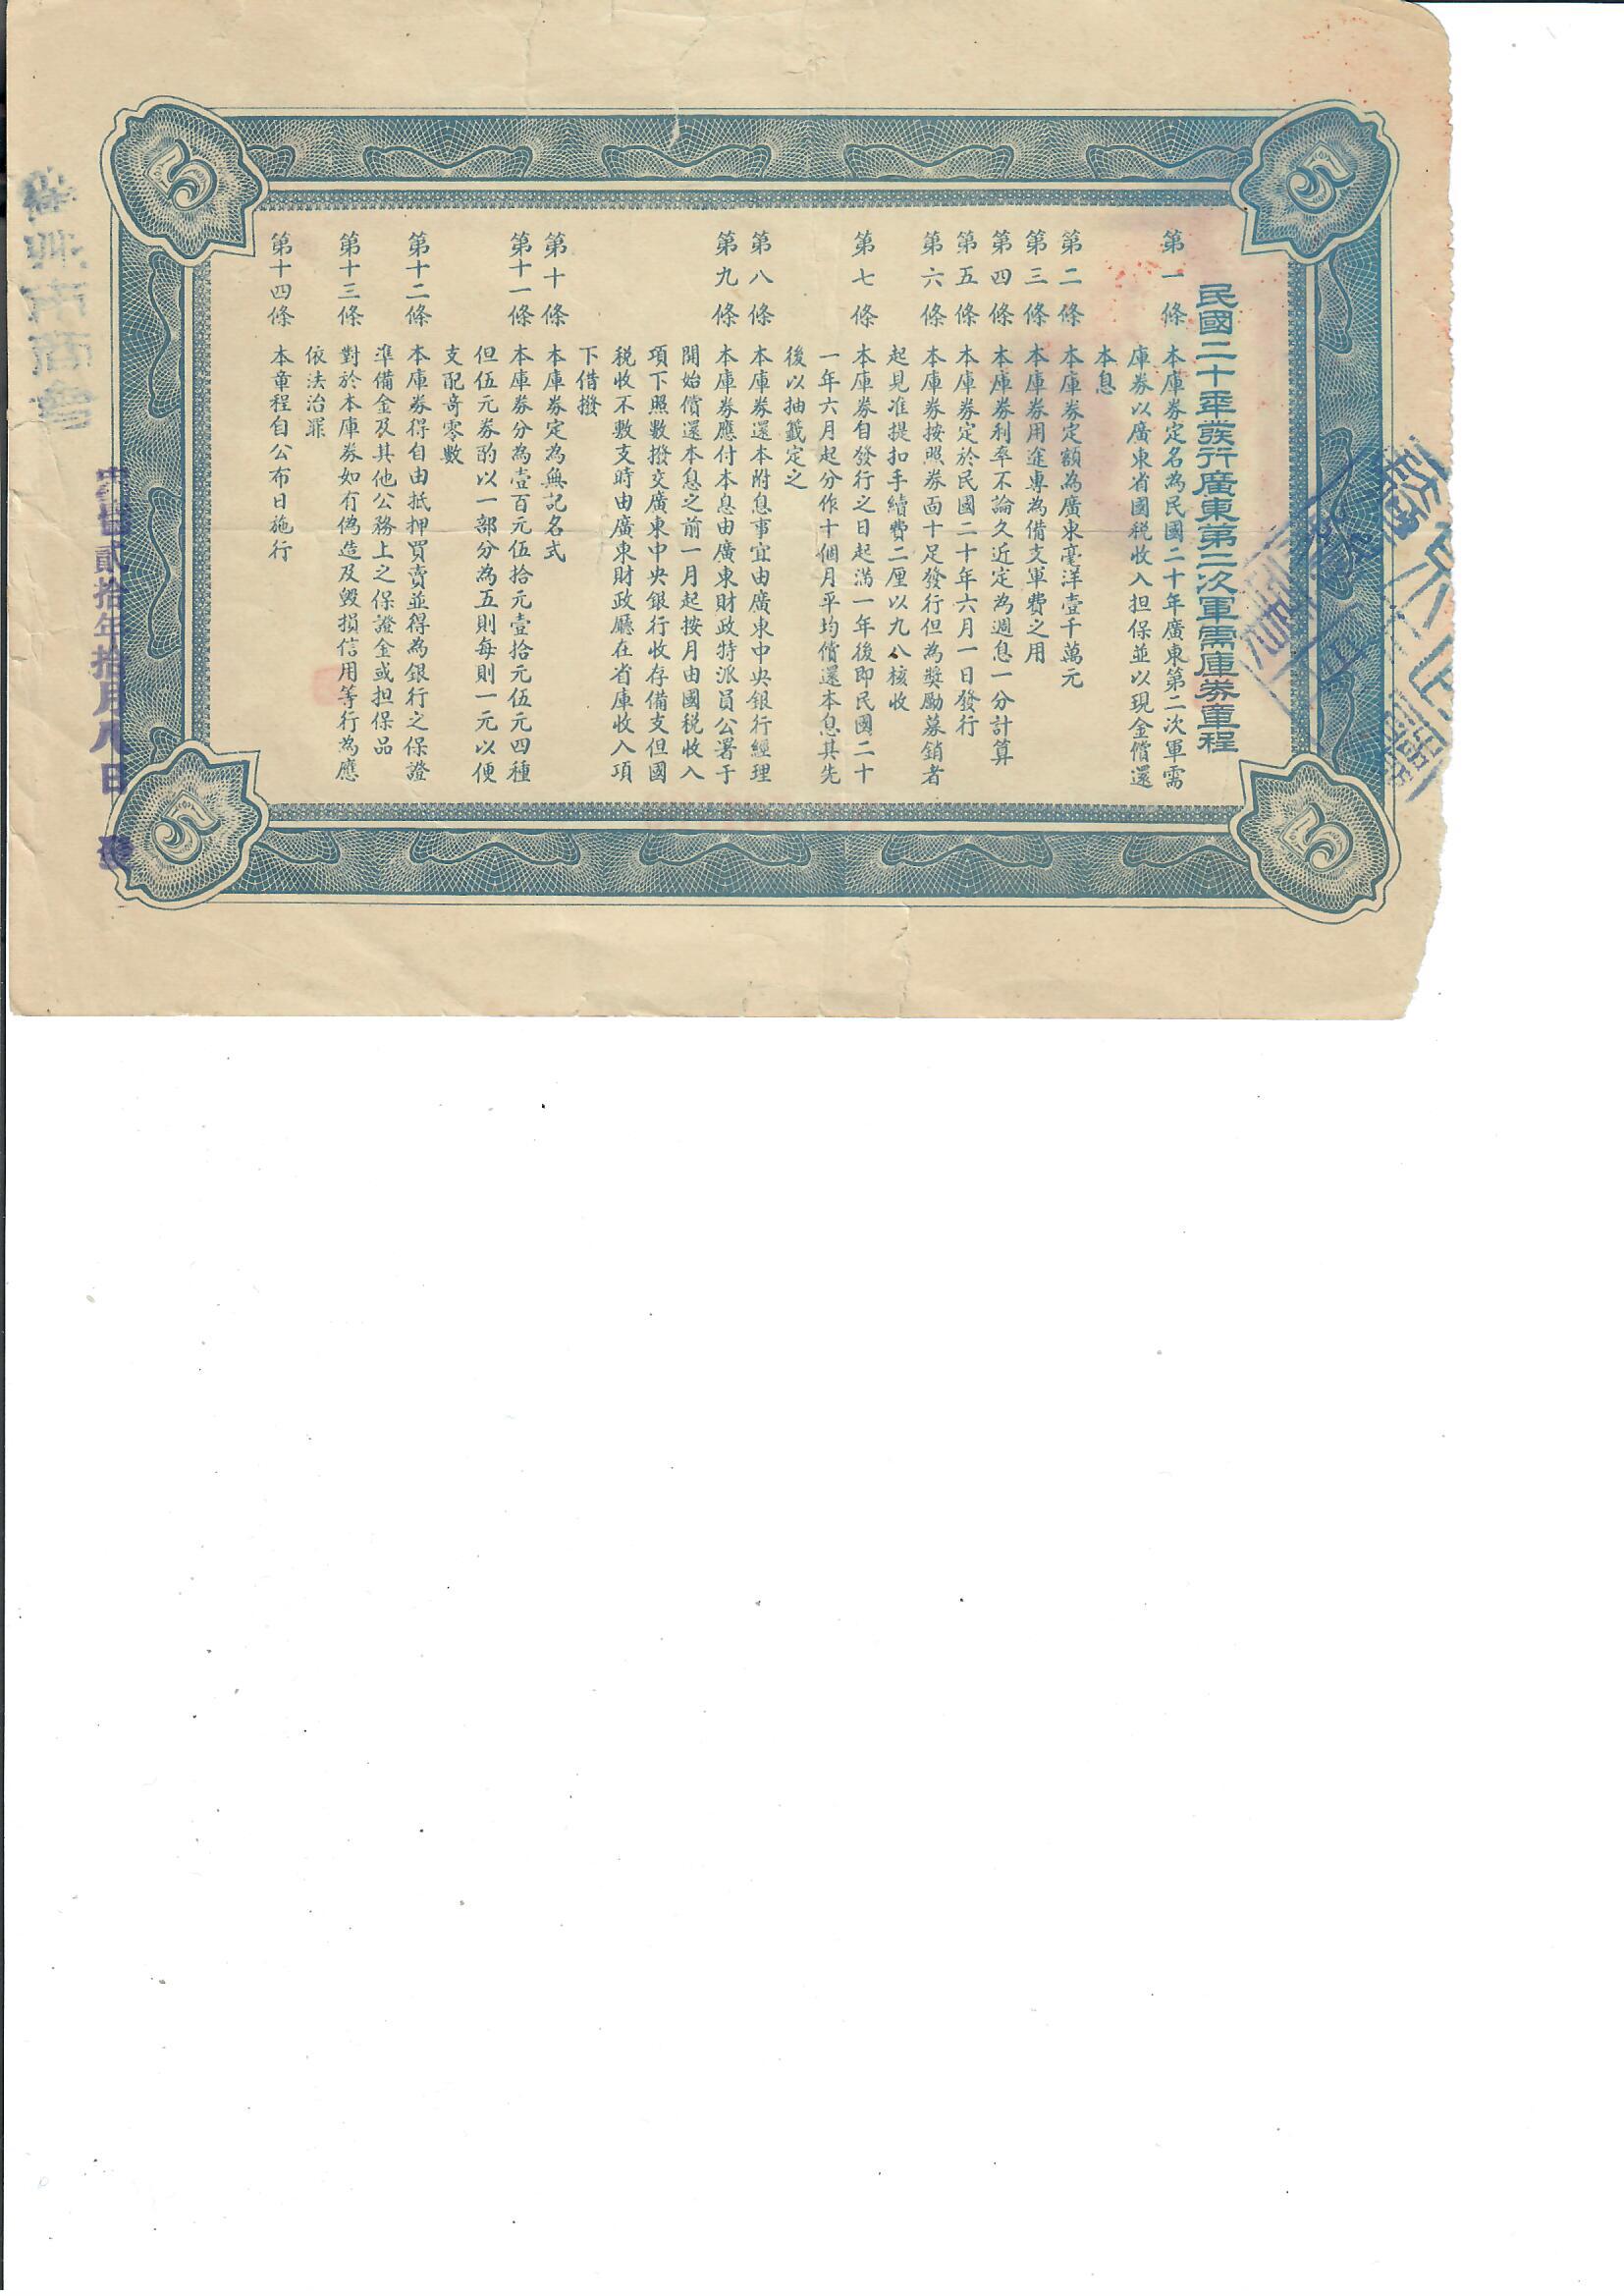 民國二十年發行廣東第二次軍需庫券章程
第一條 本庫券定名為民國二十年廣東第二次軍需
庫券以廣東省國稅收入担保並以現金償還
本息
第二條 本庫券定額為廣東毫洋壹千萬元
第三條 本庫券用途專為備支軍費之用
第四條 本庫券利率不論久近定為週息一分計算
第五條 本庫券定於民國二十年六月一日發行
第六條 本庫券按照券面十足發行但為獎勵募銷者
起見准提扣手續費二厘以九八核收
第七條 本庫券自發行之日起滿一年後即民國二十
一年六月起分作十個月平均償還本息其先
後以抽籤定之
第八條 本庫券還本附息事宜由廣東中央銀行經理
第九條 本庫券應付本息由廣東財政特派員公署于
開始償還本息之前一月起按月由國稅收入
項下照數撥交廣東中央銀行收存備支但國
稅收不敷支時由廣東財政廳在省庫收入項
下借撥
第十條 本庫券定為無記名式
第十一條 本庫券分為壹百元伍拾元壹拾元伍元四種
但伍元券酌以一部分為五則每則一元以便
支配奇零數
第十二條 本庫券得自由抵押買賣並得為銀行之保證
準備金及其他公務上之保證金或担保品
第十三條 對於本庫券如有偽造及毀損信用等行為應
依法治罪
第十四條 本章程自公布日施行
5
5
5
5
中華民國貳拾年拾月八日 發
市商會